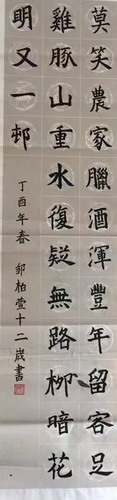 莫笑農家臘酒渾豐年留客足
雞豚山重水復疑無路柳暗花
明又一邨
丁酉年春 邹柏萱十二歲書